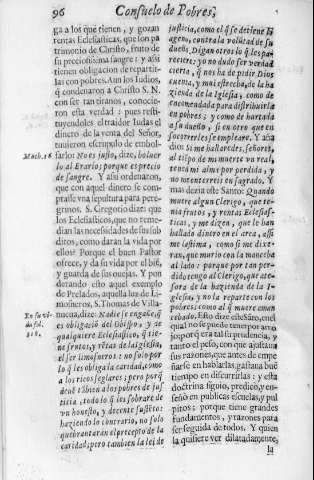 96 Consuelo de Pobres,
ga a los que tienen, y gozan
rentas Eclesiasticas, que son pa
trimonio de Christo, fruto de
su preciosissima sangre: y assi
tienen obligacion de repartir-
las con pobres. Aun los Iudios,
q̃ condenaron a Christo S. N.
con ser tan tiranos, conocie-
ron esta verdad: pues resti-
tuyendoles el traidor Iudas el
dinero de la venta del Señor,
tuvieron escrupulo de embol-
sarlo: No es justo, dize, bolver
lo al Erario; porque es precio
de sangre. Y assi ordenaron,
que con aquel dinero se com-
prasse vna sepultura para pere-
grinos. S. Gregorio dize: que
los Eclesiasticos, que no reme-
dian las necessidades de sus sub
ditos, como daran la vida por
ellos? Porque el buen Pastor
ofrece, y da su vida por el bié,
y guarda de sus ovejas. Y pon
derando esto aquel exemplo
de Prelados, aquella luz de Li-
mosneros, S. Thomas de Villa-
nueva, dize: Nadie se engañe, q̃
es obligaciõ del Obispo, y de
qualquiere Eclesiastico, q̃ tie-
ne frutos, y rẽtas de la Iglesia,
el ser limosneros: no solo por
lo q̃ les obliga la caridad, como
a los ricos seglares; pero porq̃
deuẽ tãbien a los pobres de jus
ticia, todo lo q̃ les sobrare de
vn honesto, y decente sustẽto:
haziendo lo contrario, no solo
quebrantarán el precepto de la
caridad; pero tambien la de
Math. 26
justicia, como el q̃ se detiene lo
ageno, contra la volũtad de su
dueño. Digan otros lo q̃ les pa-
reciere; yo no dudo ser verdad
cierta, q̃ nos ha de pidir Dios
cuenta, y mui estrecha, de la ha
zienda de la Iglesia, como de
encomendada para distribuirla
en pobres; y como de hurtada
a su dueño, si en otro que en
socorrerles se empleare. Y aña
dio: Si me hallaredes, señores,
al tiẽpo de mi muerte vn real,
tened mi alma por perdida, y
no me enterreis en sagrado. Y
mas dezia este Santo: Quando
muere algun Clerigo, que te-
nia frutos, y rentas Eclesias-
ticas, y me dizen, que le han
hallado dinero en el arca, assi
me lastima, como si me dixe-
ran, que murio con la manceba
al lado: porque por tan perdi-
do tengo al Clerigo, que ate-
sora de la hazienda de la I-
glesia, y no la reparte con los
pobres; como al q̃ muere aman
cebado. Esto dize este Sãto, en el
qual no se puede tener por arro
josporq̃ era tal su prudencia, y
tanto el peso, con que ajustava
sus razones, que antes de empe
ñarse en hablarlas, gastava buẽ
tiempo en discurrirlas: y esta
doctrina siguio, predicó, y en-
señó en publicas escuelas, y pul
pitos: porque tiene grandes
fundamentos, y razones para
ser seguida de todos. Y quien
la quisiere ver dilatadamente,
la